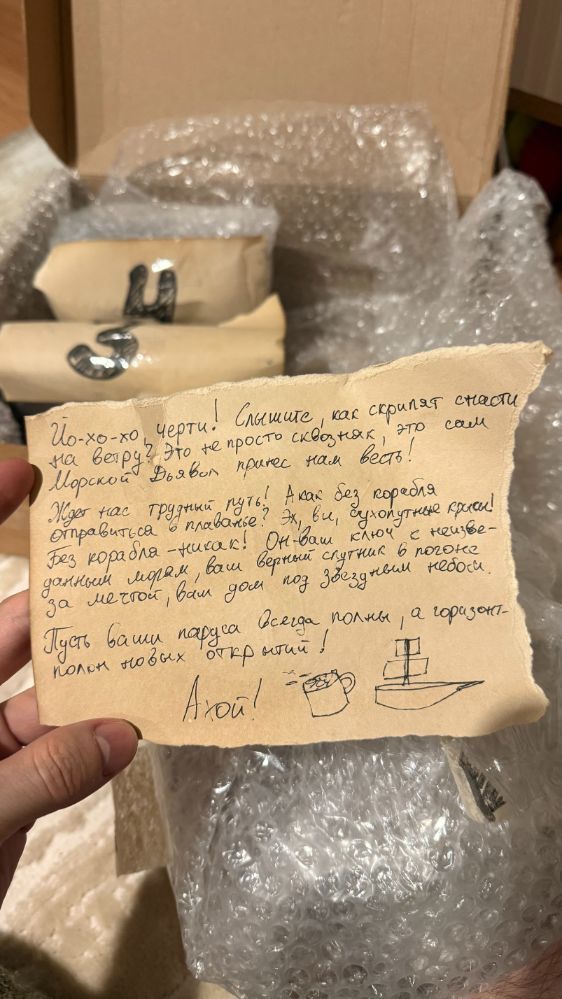 4
3
Йо-хо-хо, черти! Слышите, как скрипят снасти
на ветру? Это не просто сквозняк, это сам
Морской Дьявол принес нам весть!
Ждет нас трудный путь! А как без корабля
отправиться в плаванье? Эх, вы, сухопутные крысы!
Без корабля - никак! Он - ваш ключ к неизве-
данным морям, ваш верный спутник в погоне
за мечтой, ваш дом под звездным небом.
Пусть ваши паруса всегда полны, а горизонт -
полон новых открытий!
Ахой!